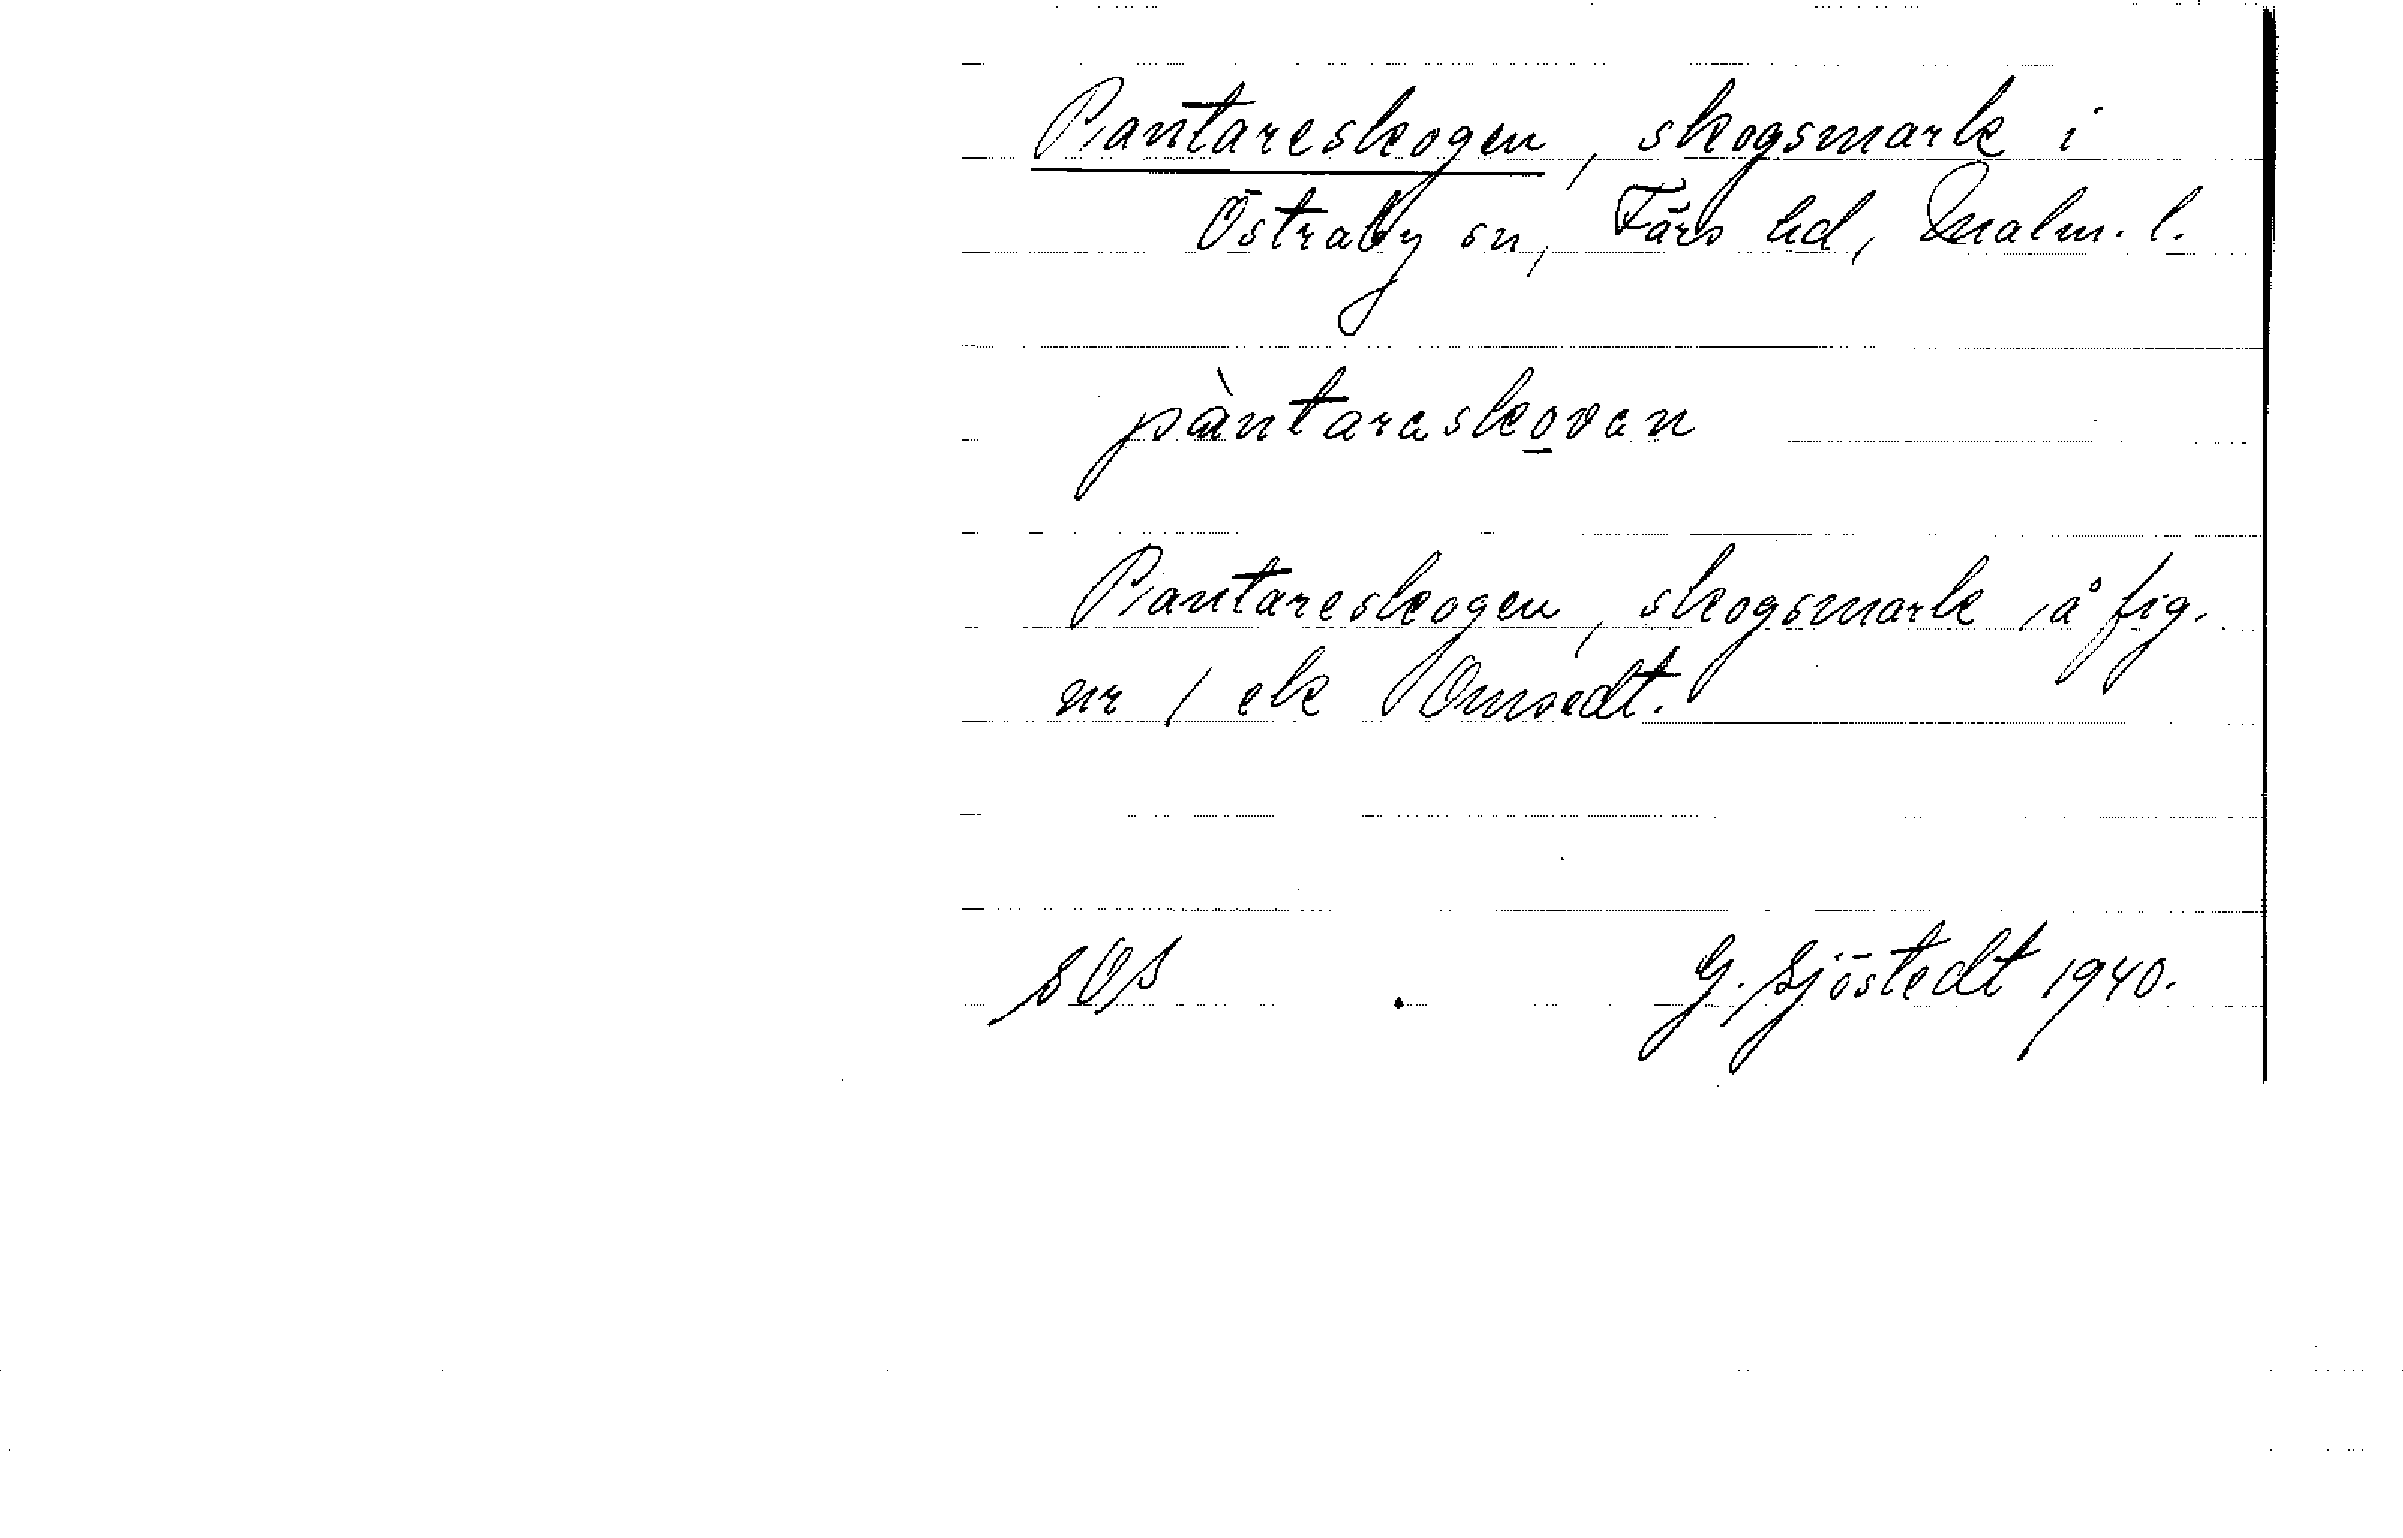 Pantareskogen, skogsmark i
Östraby sn, Färs hd, Malm. l.
pàntaraskovan
Pantareskogen, skogsmark å fig.
nr 1 ek
SOS G. Sjöstedt 1940.